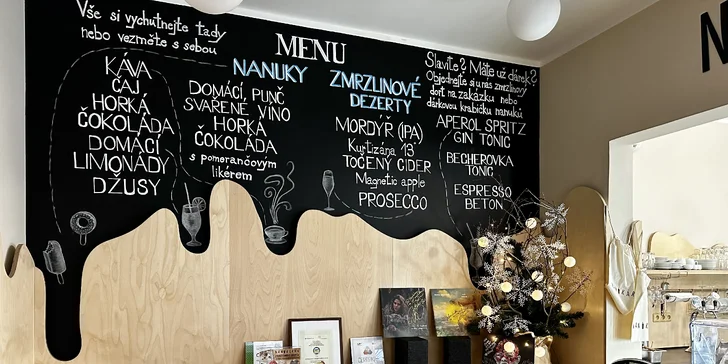 Vše si vychutnejte tady
nebo vezměte s sebou
MENU
NANUKY
ZMRZLINOVÉ
DEZERTY
Slavíte? Máte už dárek?
Objednejte si u nás zmrzlinový
dort na zakázku nebo
dárkovou krabičku nanuků
KÁVA
ČAJ
HORKÁ
ČOKOLÁDA
DOMÁCÍ
LIMONÁDY
DŽUSY
DOMÁCÍ PUNČ
SVAŘENÉ VÍNO
HORKÁ
ČOKOLÁDA
s pomerančovým
likérem
MORDÝŘ (IPA)
Kurtizána 13
TOČENÝ CIDER
Magnetic apple
PROSECCO
APEROL SPRITZ
GIN TONIC
BECHEROVKA
TONIC
ESPRESSO
BETON
N